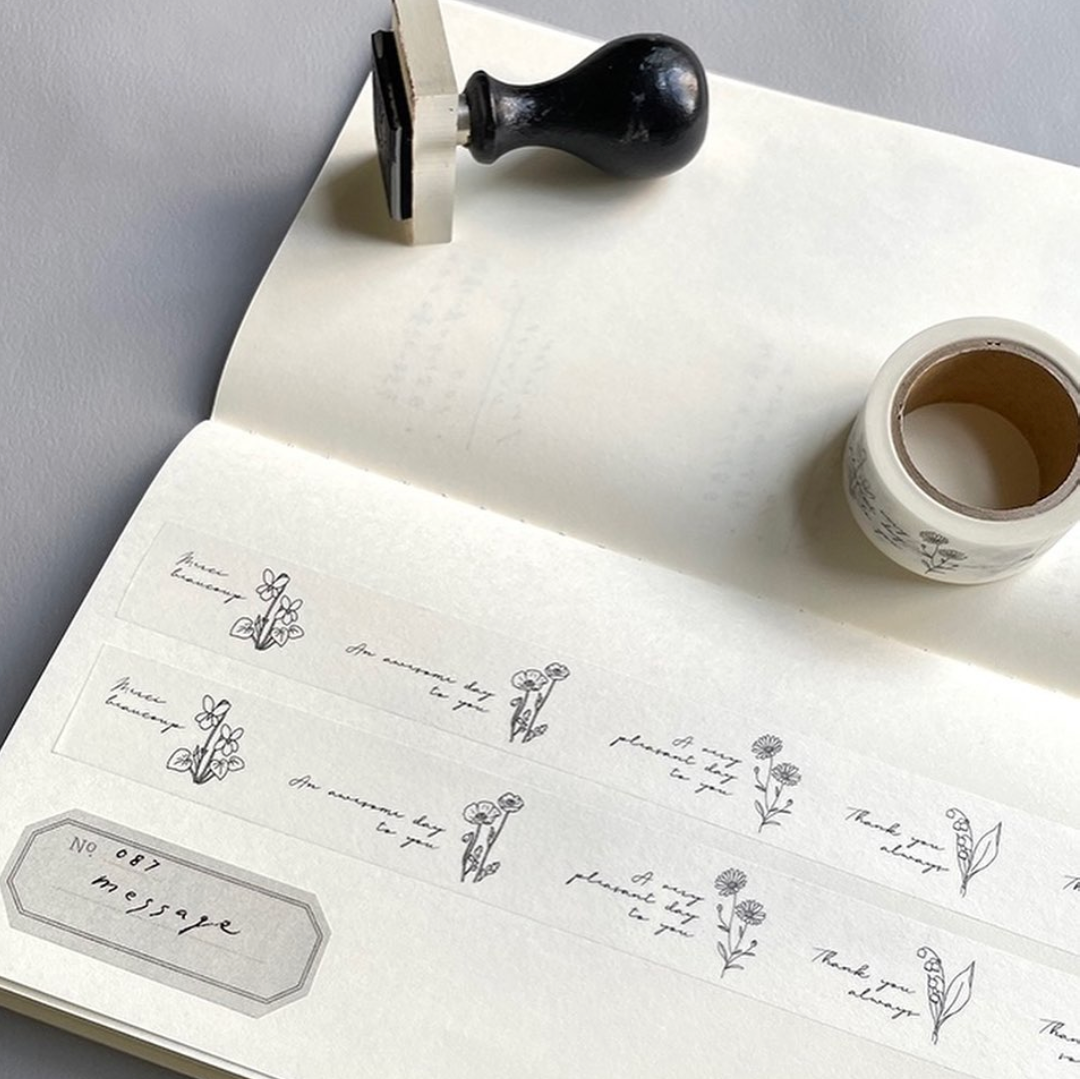 Merci
beaucoup
An awesome day
to you
A very
pleasant day
to you
Thank you
always
Merci
beaucoup
An awesome day
to you
A very
pleasant day
to you
Thank you
always
Nº 087
message